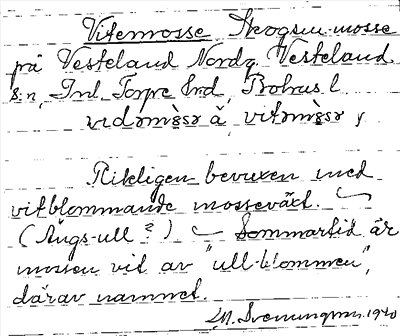 Vitemosse Skogsu. mosse
på Vesteland Nordg. Vesteland
s:n, Inl. Torpe hrd, Bohus l.
vidəmɔ̀sə å vitəmɔ̀sə
Rikligen bevuxen med
vitblommande mosseväxt.
(Ängs-ull?) – Sommartid är
mossen vit av "ull-blommen",
därav namnet.
M. Svenungsson. 1940